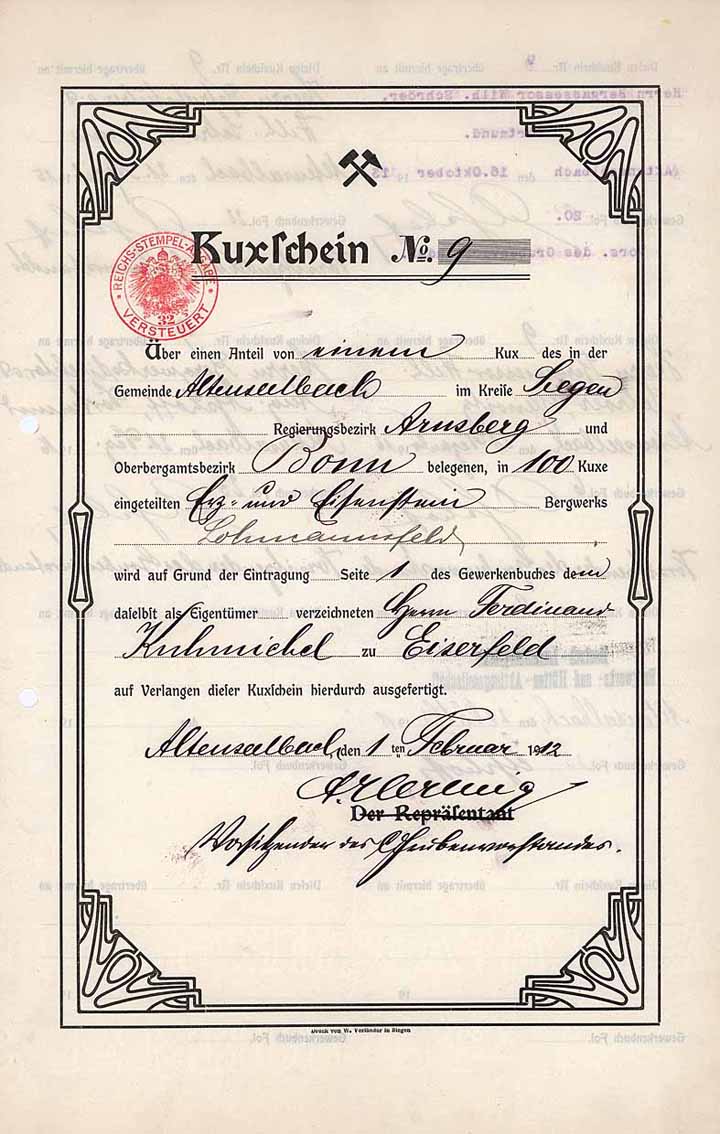 Kuxſchein No. 9
REICHS-STEMPEL-ABGABE
32
VERSTEUERT
Über einen Anteil von einem Kux des in der
Gemeinde Altenseelbach im Kreiſe Siegen
Regierungsbezirk Arnsberg und
Oberbergamtsbezirk Bonn belegenen, in 100 Kuxe
eingeteilten Erz- und Eiſenſtein Bergwerks
Lohmannsfeld
wird auf Grund der Eintragung Seite 1 des Gewerkenbuches dem
daſelbſt als Eigentümer verzeichneten Herrn Ferdinand
Kuhmichel zu Eiserfeld
auf Verlangen dieſer Kuxſchein hierdurch ausgefertigt.
Altenseelbach, den 1ten Februar 1912
Der Repräſentant
Vorsitzender des Grubenvorstandes.
Druck von W. Vorländer in Siegen